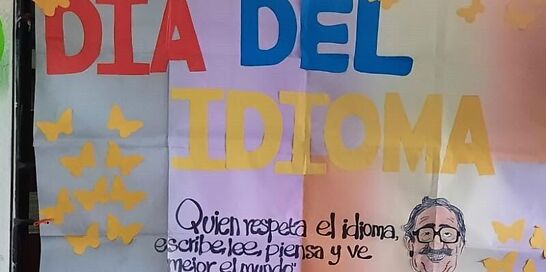 DIA DEL
IDIOMA
Quien respeta el idioma,
escribe, lee, piensa y ve
mejor el mundo"